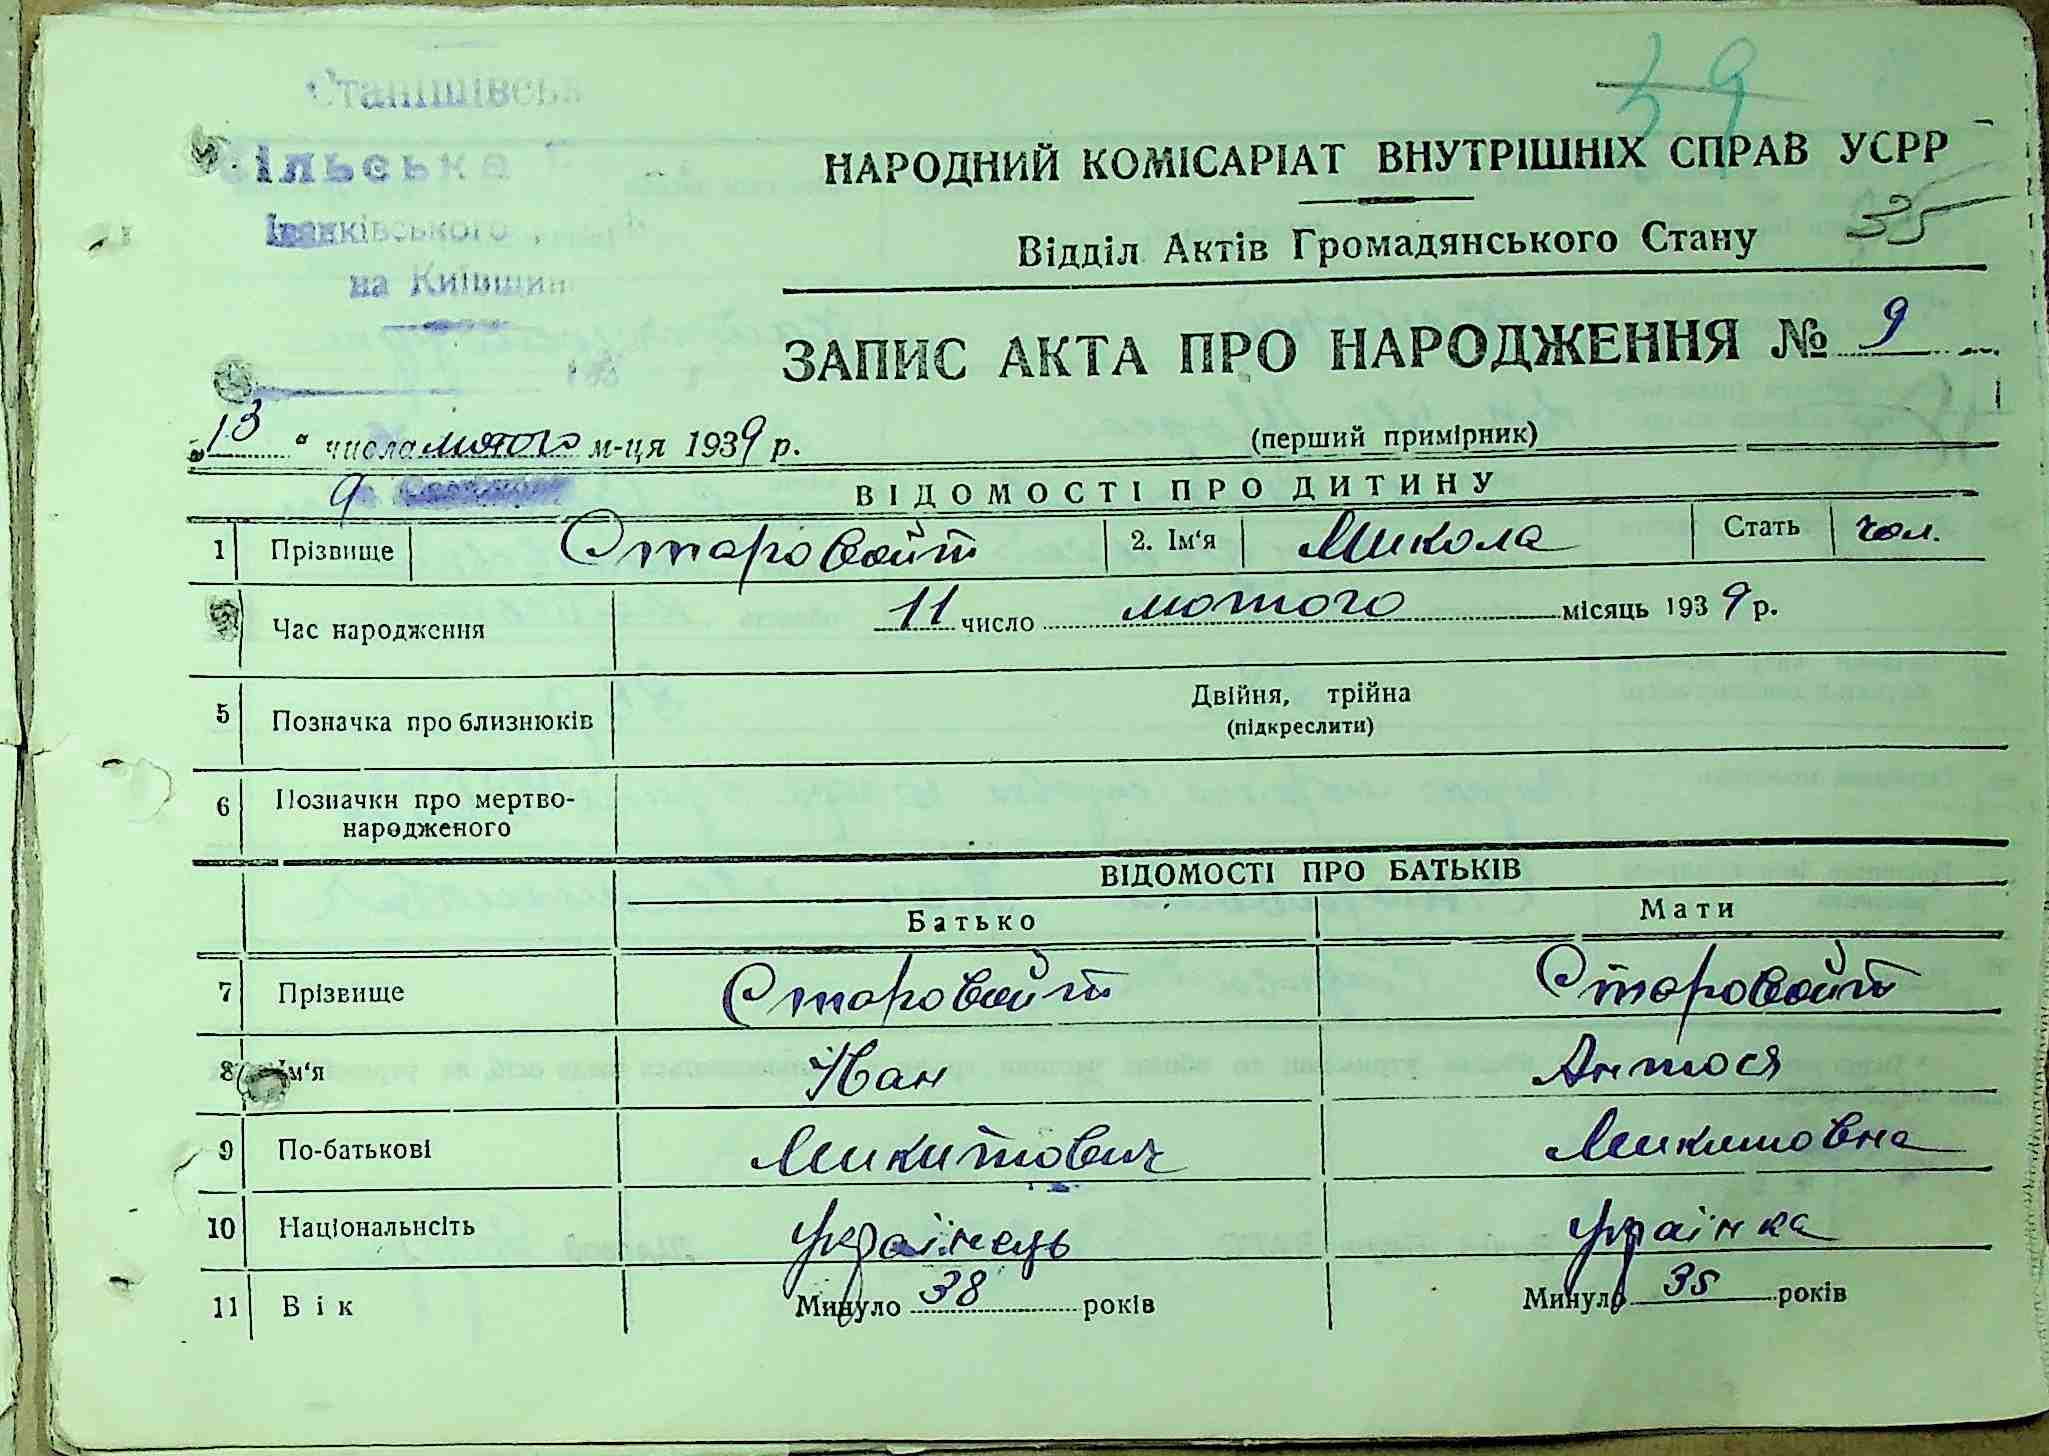 39
Станішівськ
ільська
НАРОДНИЙ КОМІСАРІАТ ВНУТРІШНІХ СПРАВ УСРР
Іванківського
35
Відділ Актів Громадянського Стану
на Київщин
ЗАПИС АКТА ПРО НАРОДЖЕННЯ № 9
„13“ числа лютого м-ця 1939 р.
(перший примірник)
9
ВІДОМОСТІ ПРО ДИТИНУ
1 Прізвище Старовойт 2. Ім‘я Микола Стать чол.
Час народження 11 число лютого місяць 1939 р.
5 Позначка про близнюків Двійня, трійна
(підкреслити)
6 Позначки про мертво-
народженого
ВІДОМОСТІ ПРО БАТЬКІВ
Батько Мати
7 Прізвище Старовойт Старовойт
8 Ім‘я Іван Антося
9 По-батькові Микитович Микитовна
10 Національнсіть українець українка
11 Вік Минуло 38 років Минуло 35 років